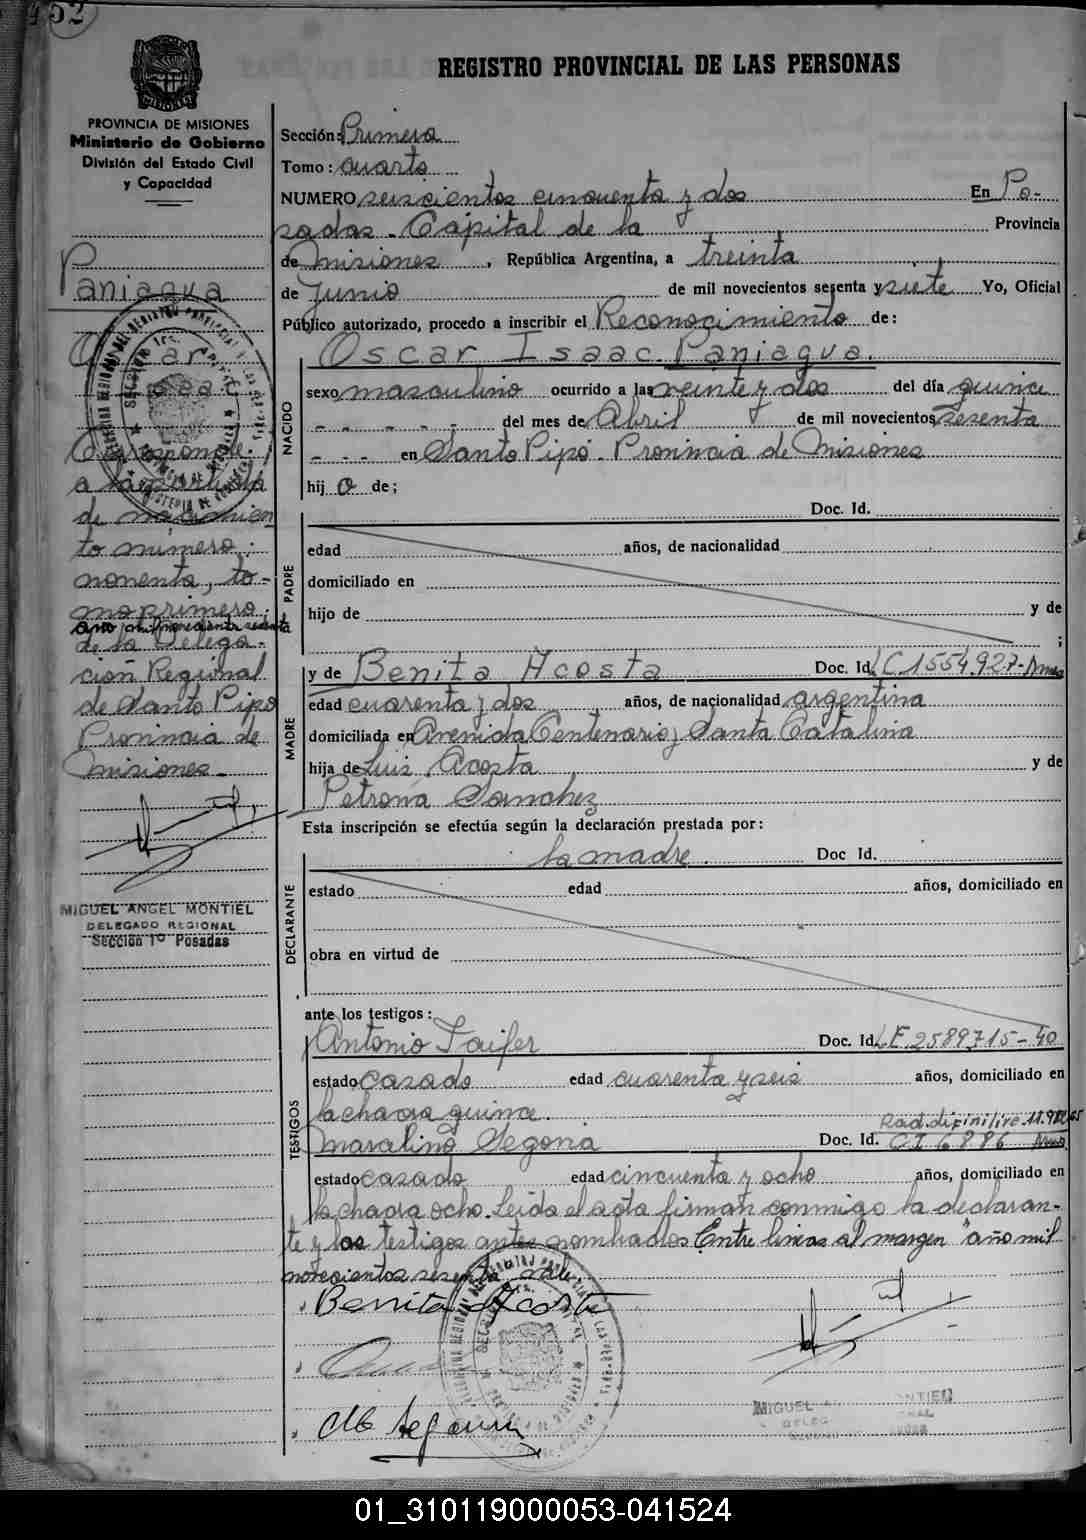 52
REGISTRO PROVINCIAL DE LAS PERSONAS
PROVINCIA DE MISIONES
Ministerio de Gobierno
División del Estado Civil
y Capacidad
Paniagua
Oscar
Isaac
Corresponde
a la partida
de nacimien
to número
noventa, to-
mo primero
año mil novecientos sesenta
de la Delega-
ción Regional
de Santo Pipo
Provincia de
Misiones-
MIGUEL ANGEL MONTIEL
DELEGADO REGIONAL
Sección 1º Posadas
Sección: Primera
Tomo: cuarto
NUMERO seiscientos cincuenta y dos En Po-
sadas - Capital de la Provincia
de Misiones, República Argentina, a treinta
de Junio de mil novecientos sesenta y siete Yo, Oficial
Público autorizado, procedo a inscribir el Reconocimiento de:
Oscar Isaac Paniagua.
NACIDO
sexo masculino ocurrido a las veinte y dos del día quince
- - - - - del mes de Abril de mil novecientos sesenta
- - - en Santo Pipó - Provincia de Misiones
hijo de;
PADRE
Doc. Id.
edad años, de nacionalidad
domiciliado en
hijo de y de
;
MADRE
y de Benita Acosta Doc. Id. LC 1554.927-
edad cuarenta y dos años, de nacionalidad argentina
domiciliada en Avenida Centenario y Santa Catalina
hija de Luis Acosta y de
Petrona Sanchez
Esta inscripción se efectúa según la declaración prestada por:
la madre. Doc Id.
DECLARANTE
estado edad años, domiciliado en
obra en virtud de
ante los testigos:
TESTIGOS
Antonio Doc. Id. L.E. 2589715-40
estado casado edad cuarenta y seis años, domiciliado en
la chacra quince.
Doc. Id. C I 6886
estado casado edad cincuenta y ocho años, domiciliado en
la chacra ocho. Leída el acta firman conmigo la declaran-
te y los testigos antes nombrados Entre lineas al margen "año mil
novecientos sesenta vale
Benita Acosta
MIGUEL
01_310119000053-041524